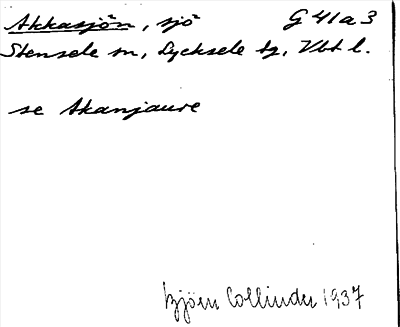 Akkasjön, sjö G 41a3
Stensele sn, Lycksele tg, Vbt l.
se Akanjaure
Björn Collinder 1937